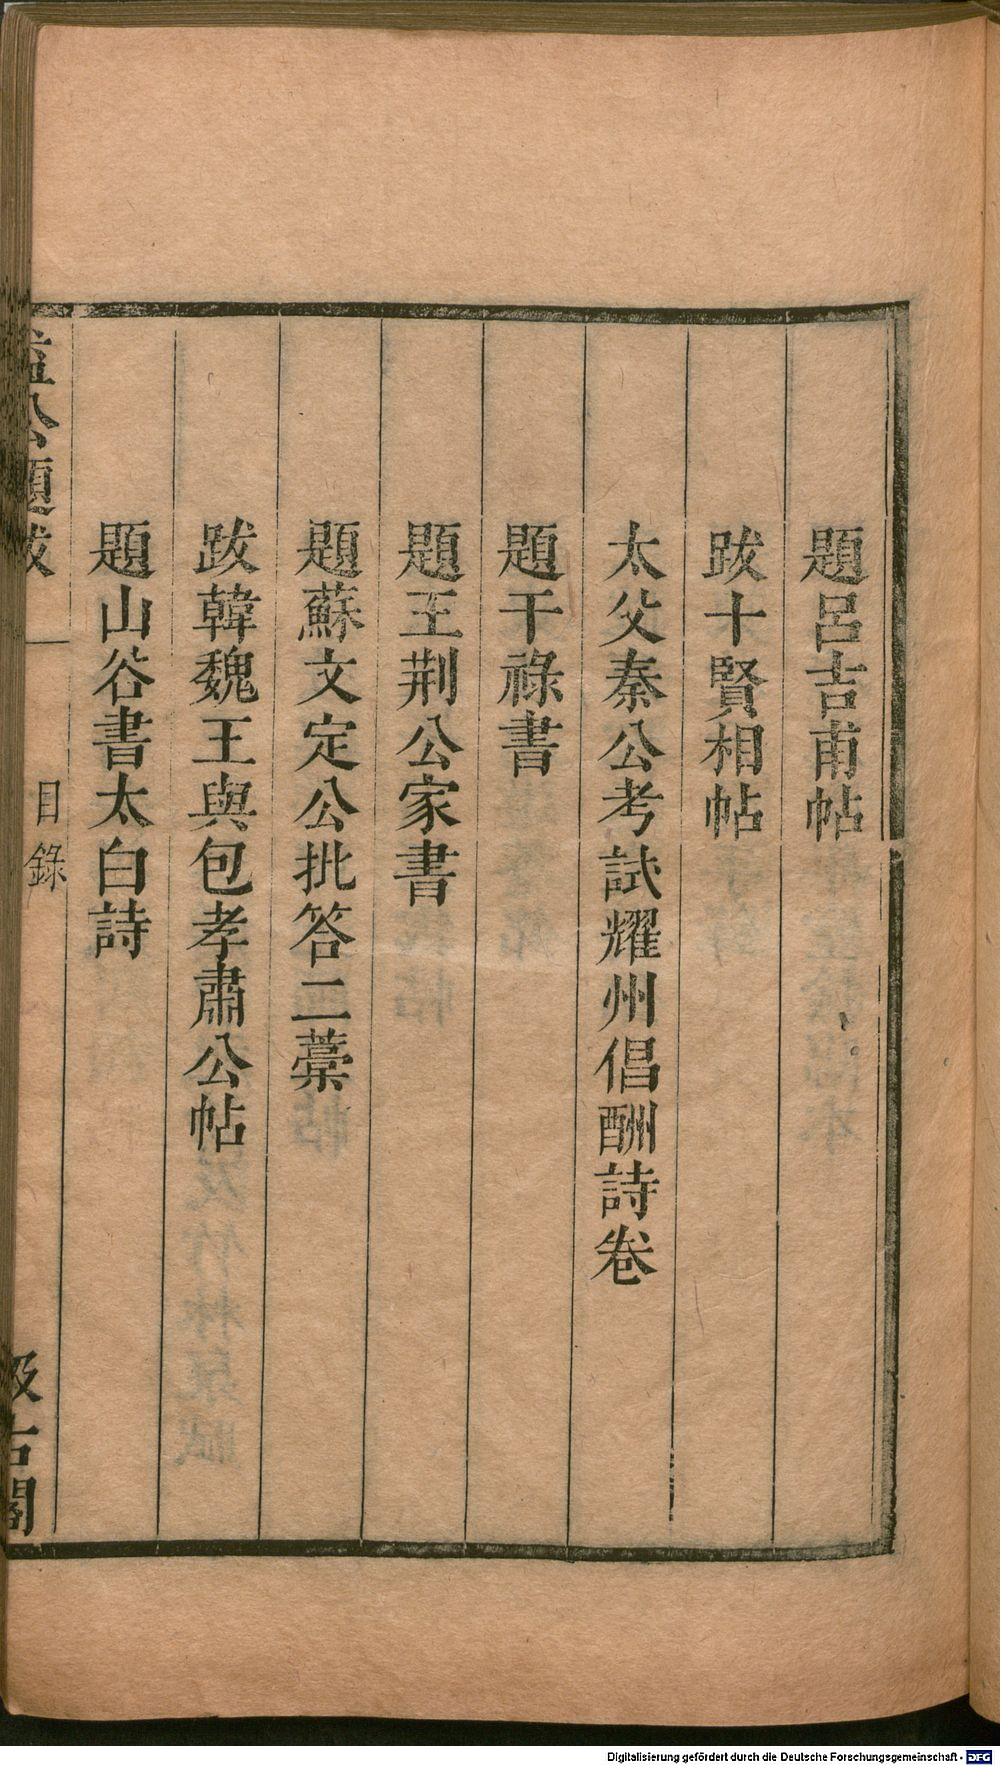 題呂吉甫帖
跋十賢相帖
太父秦公考試耀州倡酬詩卷
題干祿書
題王荆公家書
題蘇文定公批答二藁
跋韓魏王與包孝肅公帖
題山谷書太白詩
益公題跋 一 目錄 汲古閣
Digitalisierung gefördert durch die Deutsche Forschungsgemeinschaft - DFG